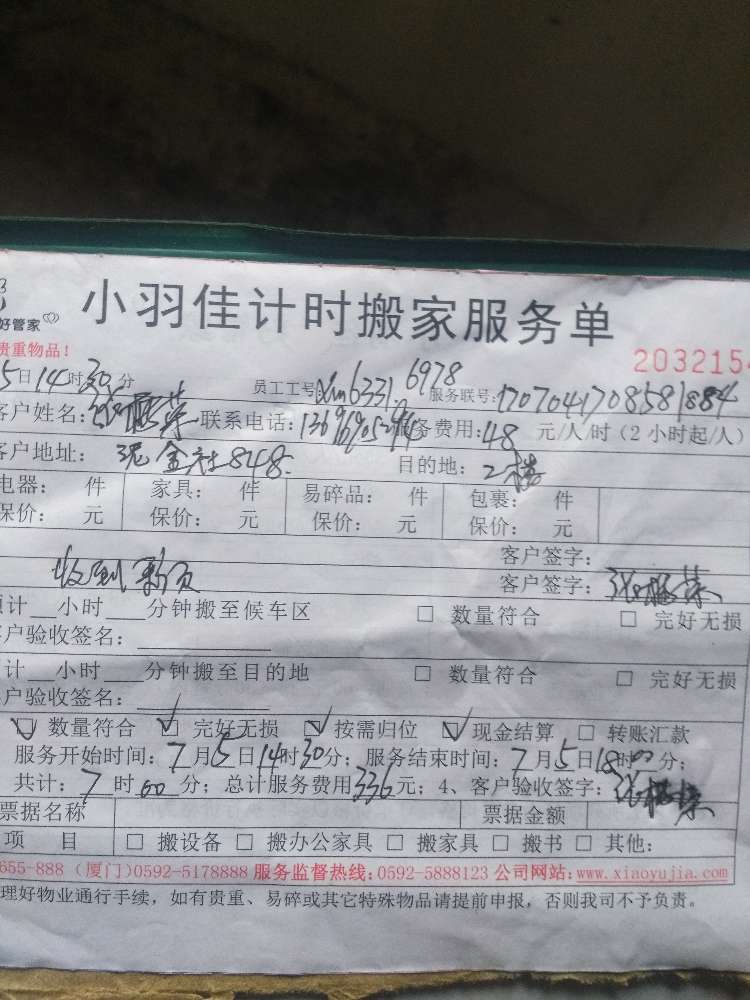 好管家
小羽佳计时搬家服务单
贵重物品!
2032154
5日14时30分 员工工号xm6331 6978 服务联号:1707041708581884
客户姓名: 联系电话: 服务费用:48元/人/时(2小时起/人)
客户地址: 金社848 目的地:2楼
电器: 件 家具: 件 易碎品: 件 包裹: 件
保价: 元 保价: 元 保价: 元 保价: 元
客户签字:
收到 客户签字:
预计__小时___分钟搬至候车区 □ 数量符合 □ 完好无损
客户验收签名:
计__小时___分钟搬至目的地 □ 数量符合 □ 完好无损
户验收签名:
☑ 数量符合 ☑ 完好无损 ☑ 按需归位 ☑ 现金结算 □ 转账汇款
服务开始时间:7月5日14时30分;服务结束时间:7月5日18时00分;
共计:7时00分;总计服务费用336元;4、客户验收签字:
票据名称 票据金额
项目 □ 搬设备 □ 搬办公家具 □ 搬家具 □ 搬书 □ 其他:
655-888(厦门)0592-5178888 服务监督热线:0592-5888123 公司网站:www.xiaoyujia.com
理好物业通行手续,如有贵重、易碎或其它特殊物品请提前申报,否则我司不予负责。